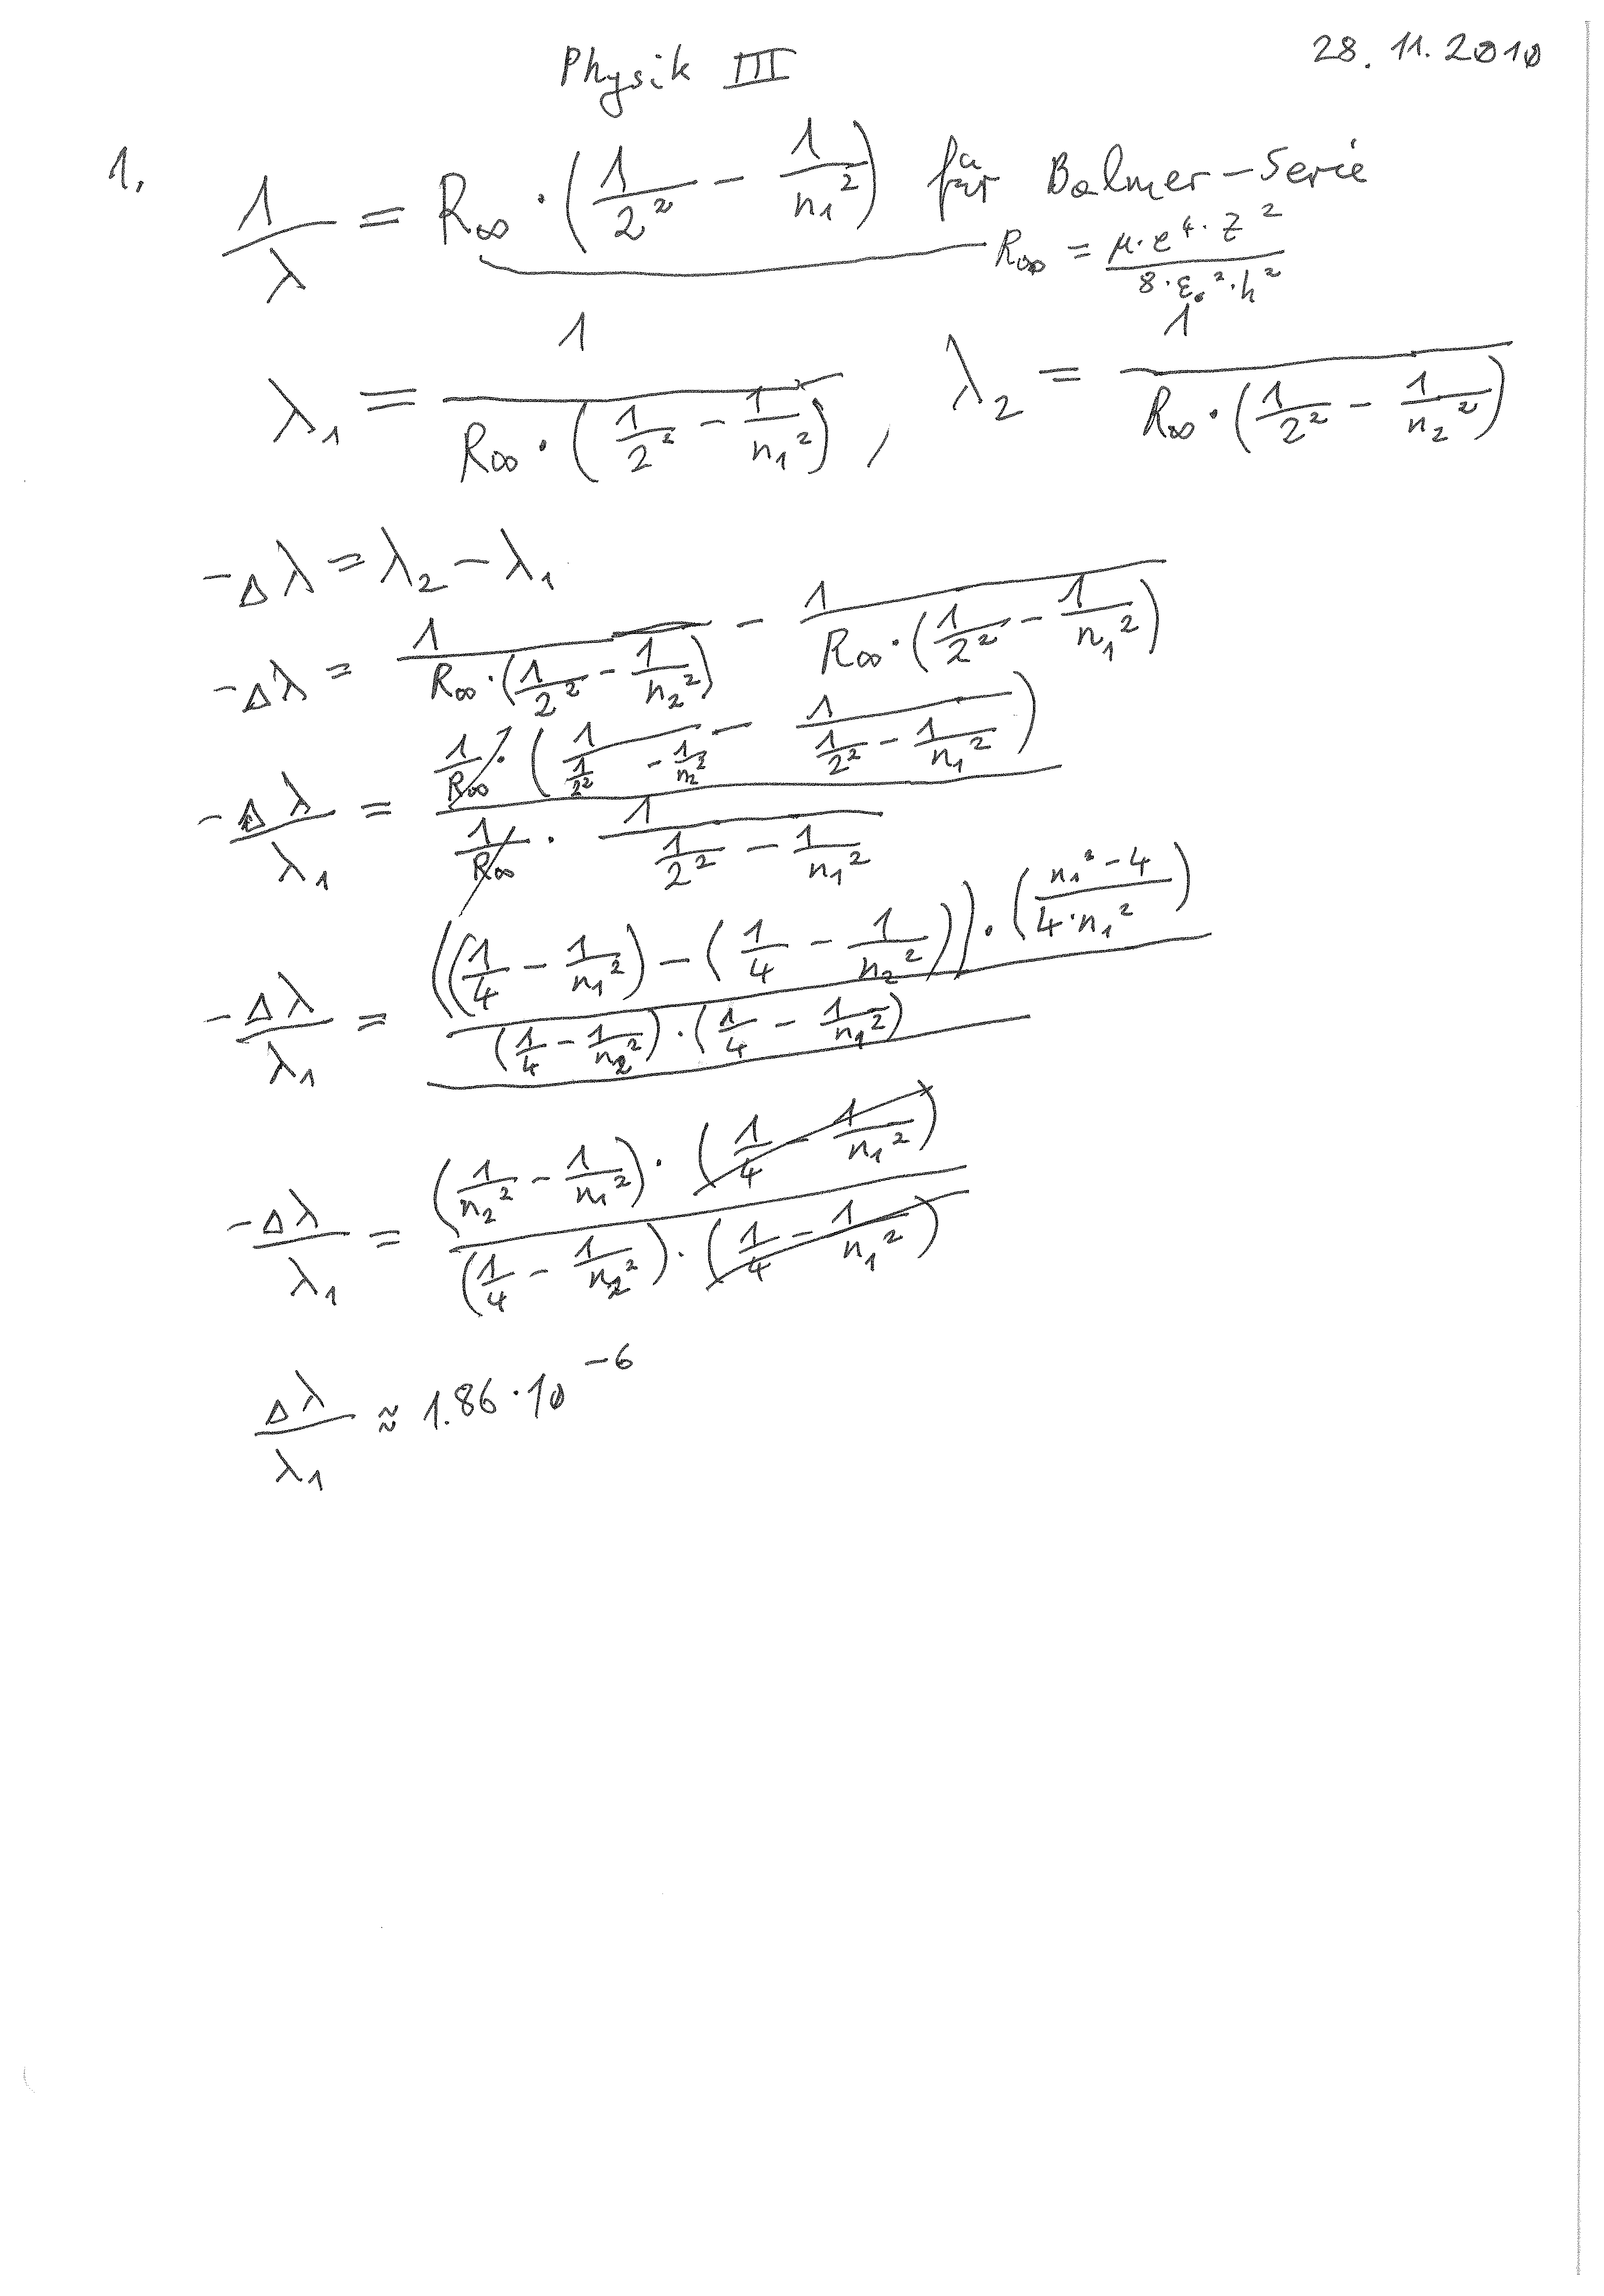 28. 11. 2010
Physik III
1. 1/λ = R∞ · (1/2² − 1/n₁²) für Balmer-Serie
R∞ = μ·e⁴·Z² / 8·ε₀²·h²
λ₁ = 1 / R∞ · (1/2² − 1/n₁²) , λ₂ = 1 / R∞ · (1/2² − 1/n₂²)
−Δλ = λ₂ − λ₁
−Δλ = 1 / R∞ · (1/2² − 1/n₂²) − 1 / R∞ · (1/2² − 1/n₁²)
−Δλ/λ₁ = 1/R∞ · (1 / (1/2² − 1/n₂²) − 1 / (1/2² − 1/n₁²)) / 1/R∞ · 1 / (1/2² − 1/n₁²)
−Δλ/λ₁ = ((1/4 − 1/n₁²) − (1/4 − 1/n₂²)) · (n₁² − 4 / 4·n₁²) / (1/4 − 1/n₂²) · (1/4 − 1/n₁²)
−Δλ/λ₁ = (1/n₂² − 1/n₁²) · (1/4 − 1/n₁²) / (1/4 − 1/n₂²) · (1/4 − 1/n₁²)
Δλ/λ₁ ≈ 1.86 · 10⁻⁶